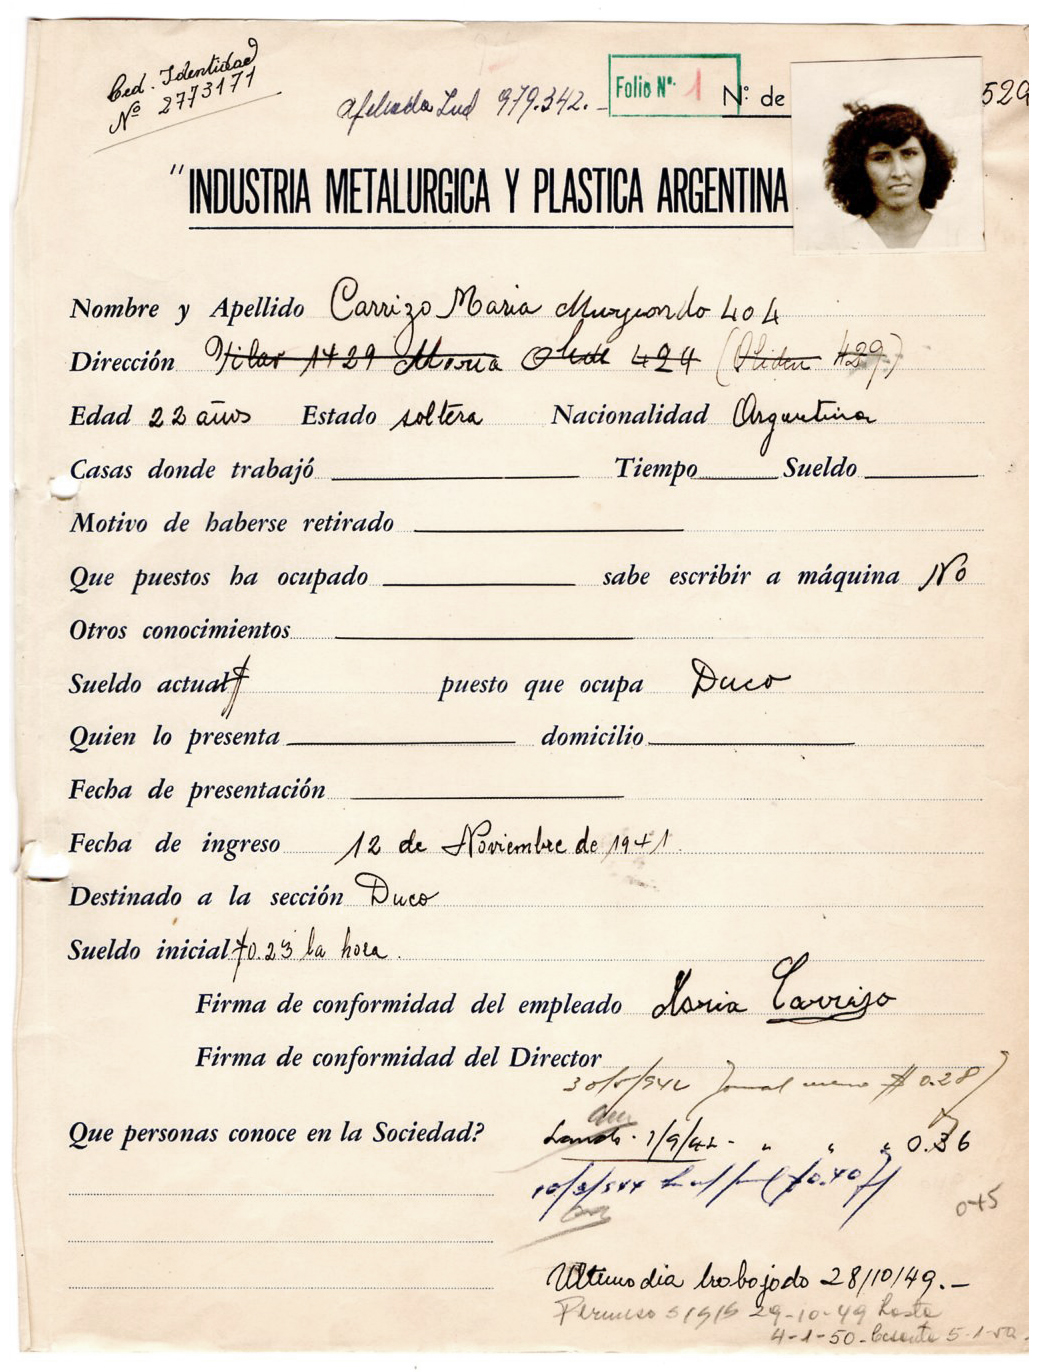 Ced. Identidad
Nº 2773171
Afiliada Ind 979.342.-
Folio Nº 1
Nº de 529
"INDUSTRIA METALURGICA Y PLASTICA ARGENTINA
Nombre y Apellido Carrizo Maria Murguiondo 404
Dirección Pilar 1429 Moria Olide 424 (Oliden 429)
Edad 22 años Estado soltera Nacionalidad Argentina
Casas donde trabajó Tiempo Sueldo
Motivo de haberse retirado
Que puestos ha ocupado sabe escribir a máquina No
Otros conocimientos
Sueldo actual $ puesto que ocupa Duco
Quien lo presenta domicilio
Fecha de presentación
Fecha de ingreso 12 de Noviembre de 1941.
Destinado a la sección Duco
Sueldo inicial $0.23 la hora.
Firma de conformidad del empleado Maria Carrizo
Firma de conformidad del Director
$ 0.28
Que personas conoce en la Sociedad?
1/9/42 - " " " 0.36
($0.40)
045
Ultimo dia trabajado 28/10/49.-
Permiso s/g/s 29-10-49 hasta
4-1-50. Cesante 5-1-50.